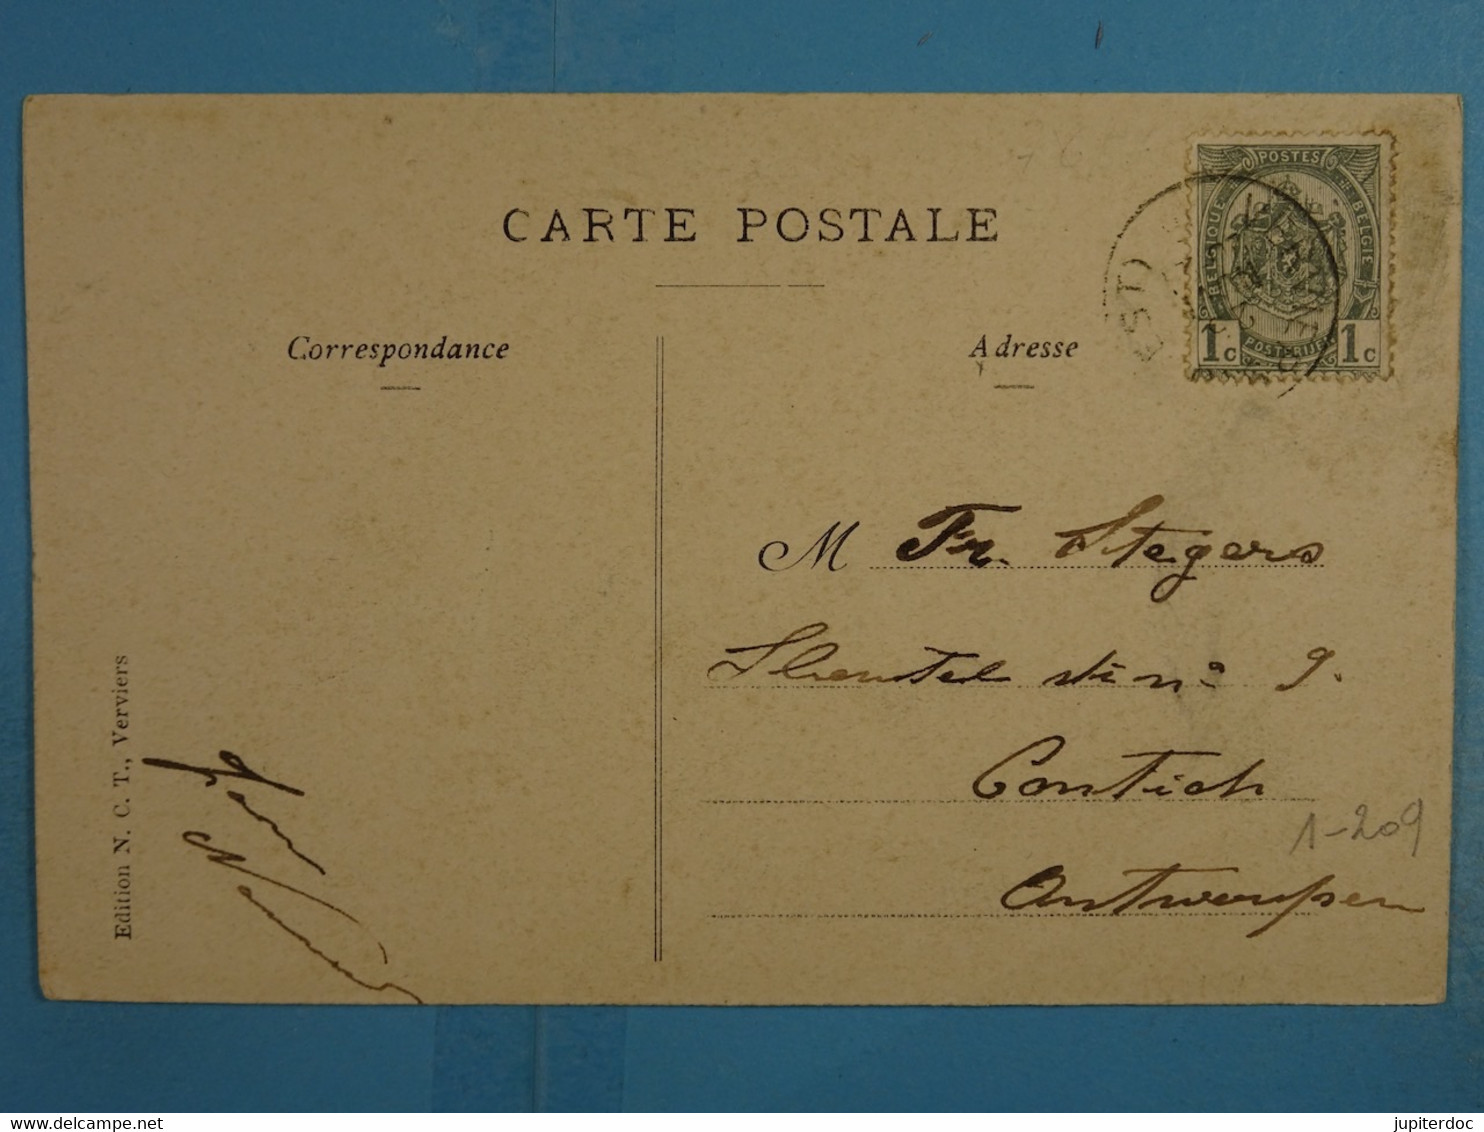 CARTE POSTALE
POSTES
BELGIQUE
BELGIE
1c
POSTERIJEN
1c
Correspondance
Adresse
M Fr. Stegers
9.
Contich
1-209
Antwerpen
Edition N. C. T., Verviers
jupiterdoc